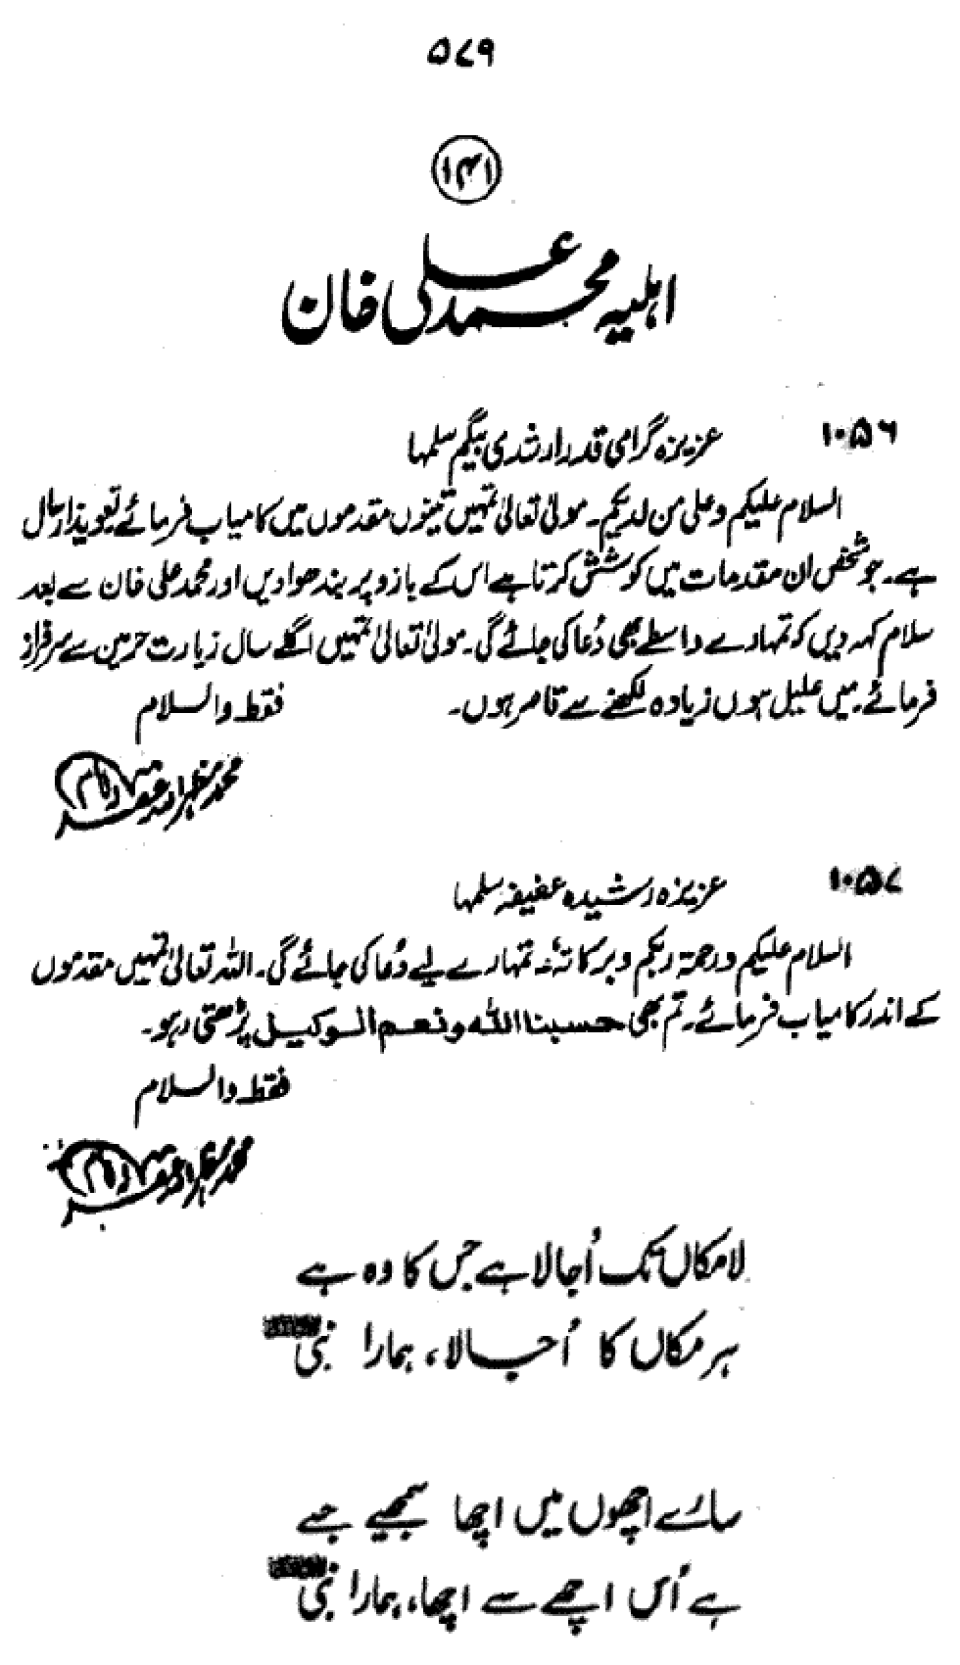 ۵۷۹
۱۴۱
اہلیہ محمد علی خان
۱۰۵۶
عزیزہ گرامی قدر ارشدی بیگم سلمہا
السلام علیکم وعلی من لدیکم۔ مولیٰ تعالیٰ تمہیں تینوں مقدموں میں کامیاب فرمائے تعویذ ارسال
ہے۔ جو شخص ان مقدمات میں کوشش کرتا ہے اس کے بازو پر بندھوا دیں اور محمد علی خان سے بعد
سلام کہہ دیں کہ تمہارے واسطے بھی دُعا کی جائے گی۔ مولیٰ تعالیٰ تمہیں اگلے سال زیارت حرمین سے سرفراز
فرمائے۔ میں علیل ہوں زیادہ لکھنے سے قاصر ہوں۔ فقط والسلام
۱۰۵۷
عزیزہ رشیدہ عفیفہ سلمہا
السلام علیکم ورحمۃ ربکم وبرکاتہٗ تمہارے لیے دُعا کی جائے گی۔ اللہ تعالیٰ تمہیں مقدموں
کے اندر کامیاب فرمائے۔ تم بھی حسبنا اللہ ونعم الوکیل پڑھتی رہو۔
فقط والسلام
لامکاں تک اُجالا ہے جس کا وہ ہے
ہر مکاں کا اُجالا، ہمارا نبی
سارے اچھوں میں اچھا سمجھیے جسے
ہے اُس اچھے سے اچھا، ہمارا نبی